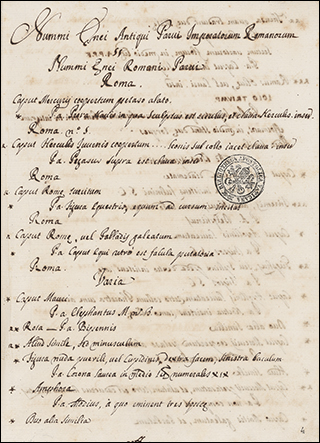 Nummi Enei Antiqui Parui Imperatorum Romanorum
Nummi Enei Romani Parui
Roma.
Caput Mercurij coopertum petaso alato.
Pa. Prora Nauis in qua sculptus est et claua Herculis
Roma n.° 5.
Caput Herculis Iuuenis coopertum Leonis sub collo iacet claua
Pa. Pegasus supra est claua
Roma
Caput Rome, turritum
Pa. Figura Equestris, equum ad cursum incitat
Roma
Caput Rome, vel Palladis galeatum
Pa. Caput Equi retro est falcula putatoria
Roma.
Varia
Caput Mauri
Pa. Elephantus
Rosa — Pa. Bisennis
Aliud Simile, sed minusculum
Figura nuda puerili, vel Cupidinis, dextra facem, sinistra baculum
Pa. Corona laurea in medio numeralis XIX
Amphora
Pa. Modius, à quo eminent tres spicae
Duo alia similia